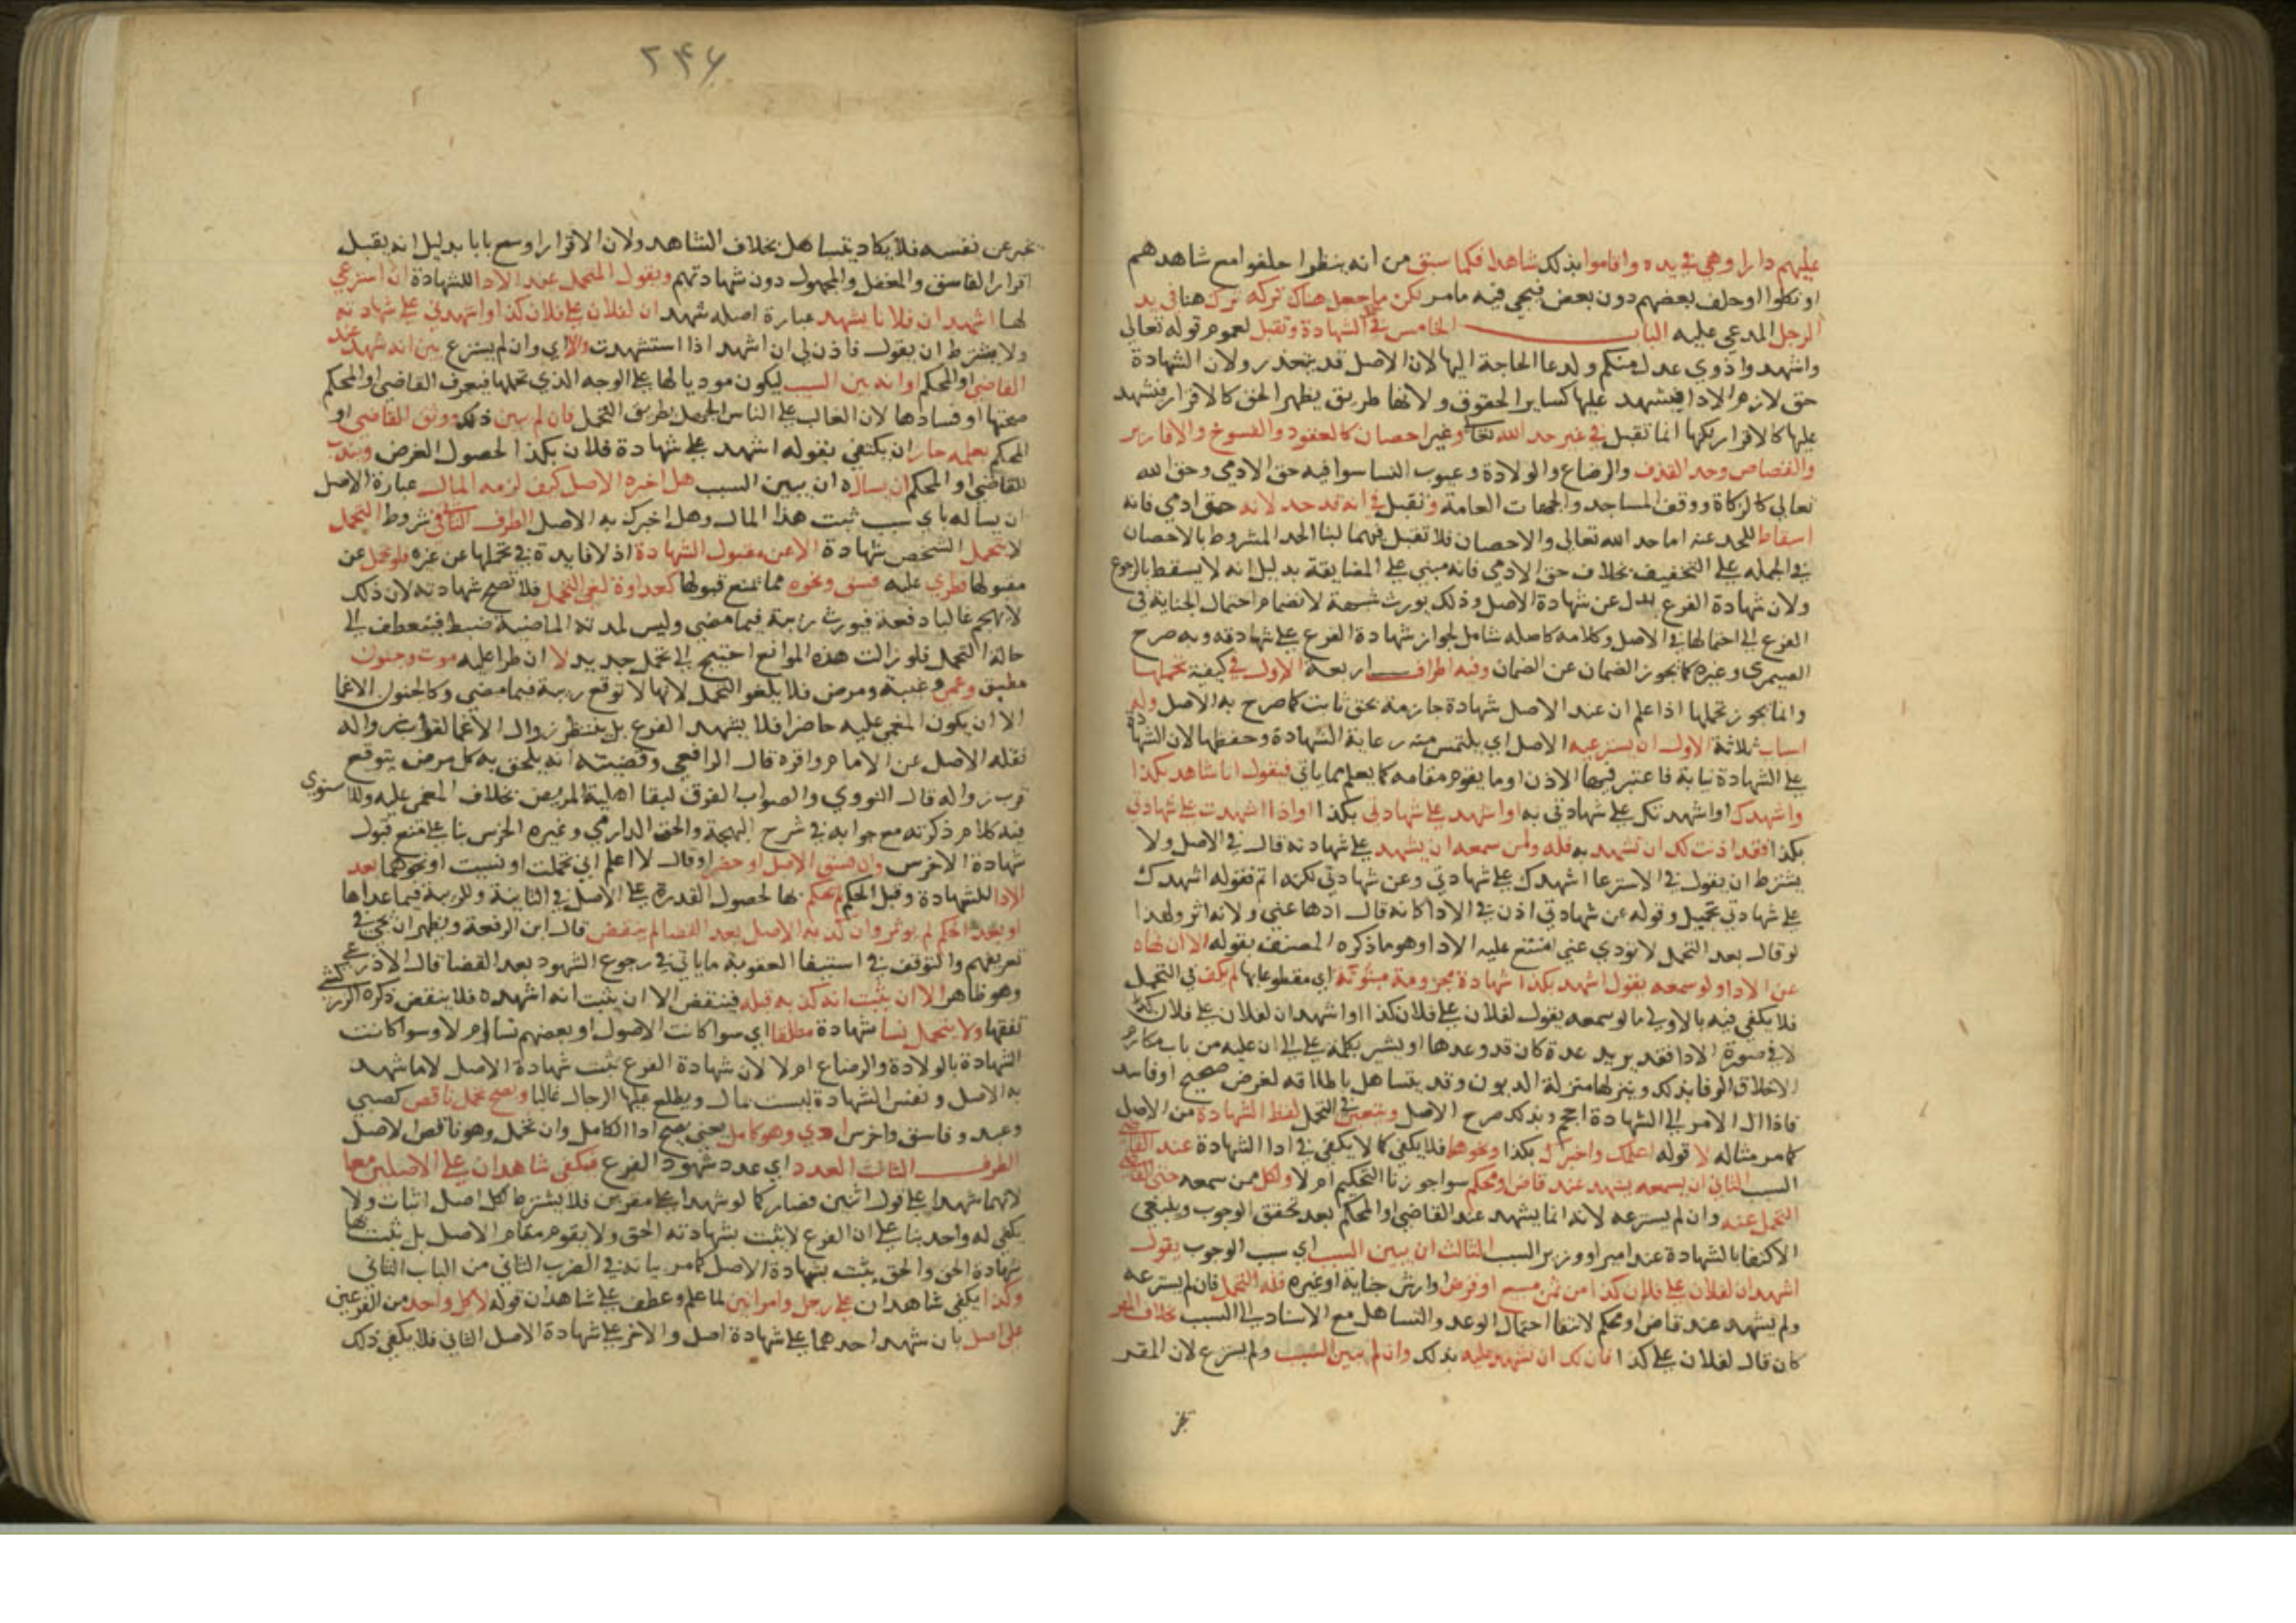 عليهم دارا وهي في يده واقاموا بذلك شاهدا فكما سبق من انه ينظرا حلفوا مع شاهدهم
او نكلوا اوحلف بعضهم دون بعض فيجي فيه ما مر لكن ما جعل هناك تركه ترك هنا في يد
الرجل المدعي عليه الباب الخامس في الشهادة وتقبل لعموم قوله تعالى
واشهدوا ذوي عدل منكم ولدعا الحاجة اليها لان الاصل قد يتعذر ولان الشهادة
حق لازم الادا فيشهد عليها كساير الحقوق ولانها طريق يظهر الحق كالاقرار فيشهد
عليها كالاقرار لكنها انما تقبل في غير حد الله تعالى وغير احصان كالعقود والفسوخ والاقارير
والقصاص وحد القذف والرضاع والولادة وعيوب النسا سوا فيه حق الادمي وحق الله
تعالى كالزكاة ووقف المساجد والجهات العامة وتقبل في انه قد حد لانه حق ادمي فانه
اسقاط للحد عنه اما حد الله تعالى والاحصان فلا تقبل فيهما لبنا الحد المشروط بالاحصان
في الجملة على التخفيف بخلاف حق الادمي فانه مبني على المضايقة بدليل انه لا يسقط بالرجوع
ولان شهادة الفرع بدل عن شهادة الاصل وذلك يورث شبهة لانضمام احتمال الجناية في
الفرع الى احتمالها في الاصل وكلامه كاصله شامل لجواز شهادة الفرع على شهادته وبه صرح
الصيمري وغيره كما يجوز الضمان عن الضمان وفيه اطراف اربعة الاول في كيفية تحملها
وانما يجوز تحملها اذا علم ان عند الاصل شهادة جازمة بحق ثابت كما صرح به الاصل وله
اسباب ثلاثة الاول ان يسترعيه الاصل اي يلتمس منه رعاية الشهادة وحفظها لان الشهادة
على الشهادة نيابة فاعتبر فيها الاذن او ما يقوم مقامه كما يعلم مما ياتي فيقول انا شاهد بكذا
واشهدك او اشهدتك على شهادتي به او اشهد على شهادتي بكذا او اذا اشهدت على شهادتي
بكذا فقد اذنت لك ان تشهد به فله ولمن سمعه ان يشهد على شهادته قال في الاصل ولا
يشترط ان يقول في الاسترعا اشهدك على شهادتي وعن شهادتي لكنه اتم فقوله اشهدك
على شهادتي تحميل وقوله عن شهادتي اذن في الادا كانه قال ادها عني ولاذنه اثر ولهذا
لو قال بعد التحمل لا تودي عني امتنع عليه الادا وهو ما ذكره المصنف بقوله الا ان نهاه
عن الادا ولو سمعه يقول اشهد بكذا شهادة مجزومة مبثوثة اي مقطوعا بها لم يكف في التحمل
فلا يكفي فيه بالاولى ما لو سمعه يقول لفلان على فلان كذا او اشهد ان لفلان على فلان كذا
لا في صورة الادا فقد يريد عدة كان قد وعدها او يشير بكلمة على الى ان عليه من باب مكارم
الاخلاق الوفا بذلك وينزلها منزلة الديون وقد يتساهل باطلاقه لغرض صحيح او فاسد
فاذا ال الامر الى الشهادة احجم وبذلك صرح الاصل ويتعين في التحمل لفظ الشهادة من الاصل
كما مر مثاله لا قوله اعلمك واخبرك بكذا ونحوها فلا يكفي كما لا يكفي في ادا الشهادة عند القاضي
السبب الثاني ان يسمعه يشهد عند قاض او محكم سوا جوزنا التحكيم ام لا ولكل ممن سمعه حتى القاضي
التحمل عنه وان لم يسترعه لانه انما يشهد عند القاضي او المحكم بعد تحقق الوجوب وينبغي
الاكتفا بالشهادة عند امير او وزير السبب الثالث ان يبين السبب اي سبب الوجوب يقول
اشهد ان لفلان على فلان كذا من ثمن مبيع او قرض او ارش جناية او غيره فله التحمل فان لم يسترعه
ولم يشهد عند قاض او محكم لانتفا احتمال الوعد والتساهل مع الاسناد الى السبب بخلاف المقر
كان قال لفلان على كذا فان لك ان تشهد عليه بذلك وان لم يبين السبب ولم يسترع لان المقر
٢٤٦
يخبر عن نفسه فلا يكاد يتساهل بخلاف الشاهد ولان الاقرار اوسع بابا بدليل انه يقبل
اقرار الفاسق والمغفل والمجهول دون شهادتهم ويقول المتحمل عند الادا للشهادة ان استرعي
لها اشهد ان فلانا يشهد عبارة اصله شهد ان لفلان على فلان كذا واشهدني على شهادته
ولا يشترط ان يقول فاذن لي ان اشهد اذا استشهدت والا اي وان لم يسترع بين انه شهد عند
القاضي او المحكم او انه بين السبب ليكون موديا لها على الوجه الذي تحملها فيعرف القاضي او المحكم
صحتها او فسادها لان الغالب على الناس الجهل بطريق التحمل فان لم يبين ذلك ووثق القاضي او
المحكم بعلمه جاز ان يكتفي بقوله اشهد على شهادة فلان بكذا لحصول الغرض ويندب
للقاضي او المحكم ان يساله ان يبين السبب هل اخبره الاصل كيف لزمه المال عبارة الاصل
ان يساله باي سبب ثبت هذا المال وهل اخبرك به الاصل الطرف الثاني في شروط التحمل
لا يتحمل الشخص شهادة الا عن مقبول الشهادة اذ لا فايدة في تحملها عن غيره فلو تحمل عن
مقبولها فطري عليه فسق ونحوه مما يمنع قبولها كعداوة لغي التحمل فلا تصح شهادته لان ذلك
لا يهجم غالبا دفعة فيورث ريبة فيما مضى وليس لمدته الماضية ضبط فينعطف الى
حالة التحمل فلو زالت هذه الموانع احتيج الى تحمل جديد لا ان طرا عليه موت وجنون
مطبق وعمي وغيبة ومرض فلا يلغو التحمل لانها لا توقع ريبة فيما مضى وكالجنون الاغما
الا ان يكون المغمى عليه حاضرا فلا يشهد الفرع بل ينتظر زوال الاغما لقرب زواله
نقله الاصل عن الامام واقره قال الرافعي وقضيته انه يلحق به كل مرض يتوقع
قرب زواله قال النووي والصواب الفرق لبقا اهلية المريض بخلاف المغمى عليه وللاسنوي
فيه كلام ذكرته مع جوابه في شرح البهجة والحق الدارمي وغيره الخرس بنا على منع قبول
شهادة الاخرس وان فسق الاصل او حضر او قال لا اعلم اني تحملت او نسيت او نحوهما بعد
الادا للشهادة وقبل الحكم لم يحكم بها لحصول القدرة على الاصل في الثانية وللريبة فيما عداها
او بعد الحكم لم يوثر وان كذبه الاصل بعد القضا لم ينقض قال ابن الرفعة ويظهر ان يجي في
تعريفهم والتوقف في استيفا العقوبة ما ياتي في رجوع الشهود بعد القضا قال الاذرعي
وهو ظاهر الا ان يثبت انه كذبه قبله فينقض الا ان يثبت انه اشهده فلا ينقض ذكره الزركشي
تفقها ولا يتحمل نسا شهادة مطلقا اي سوا كانت الاصول او بعضهم نسا ام لا وسوا كانت
الشهادة بالولادة والرضاع ام لا لان شهادة الفرع تثبت شهادة الاصل لا ما شهد
به الاصل ونفس الشهادة ليست مال ويطلع عليها الرجال غالبا ويصح تحمل ناقص كصبي
وعبد وفاسق واخرس ادي وهو كامل يعني يصح ادا الكامل وان تحمل وهو ناقص كالاصل
الطرف الثالث العدد اي عدد شهود الفرع فيكفي شاهدان على الاصلين معا
لانهما شهدا على قول اثنين فصار كما لو شهدا على مقرين فلا يشترط لكل اصل اثنان ولا
يكفي له واحد بنا على ان الفرع لا يثبت بشهادته الحق ولا يقوم مقام الاصل بل يثبت بها
شهادة الحق والحق يثبت بشهادة الاصل كما مر بيانه في الضرب الثاني من الباب الثاني
وكذا يكفي شاهدان على رجل وامراتين لما علم وعطف على شاهدان قوله لا كل واحد من الفرعين
على اصل بان شهد احدهما على شهادة اصل والاخر على شهادة الاصل الثاني فلا يكفي ذلك